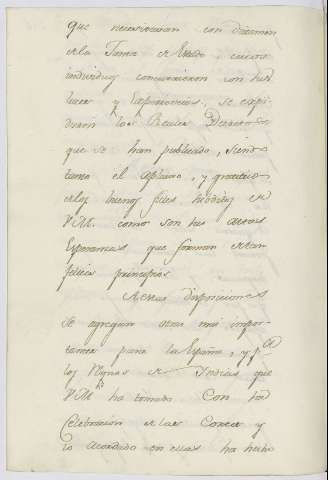 que necesitavan con dictamen
de la Junta de Estado, cuios
individuos concurrieron con sus
luces y experiencias, se expi-
dieron los Reales Decretos
que se han publicado, siendo
tanto el aplauso, y gratitud
de los buenos fieles subditos de
V.M. como son sus
esperanzas que forman de tan
felices principios.
A estas disposiciones
se agregan otras mui impor-
tantes para la España, y pa
los Reynos de Indias que
V.M. ha tomado. Con la
celebracion de las Cortes y
lo acordado en ellas ha hecho